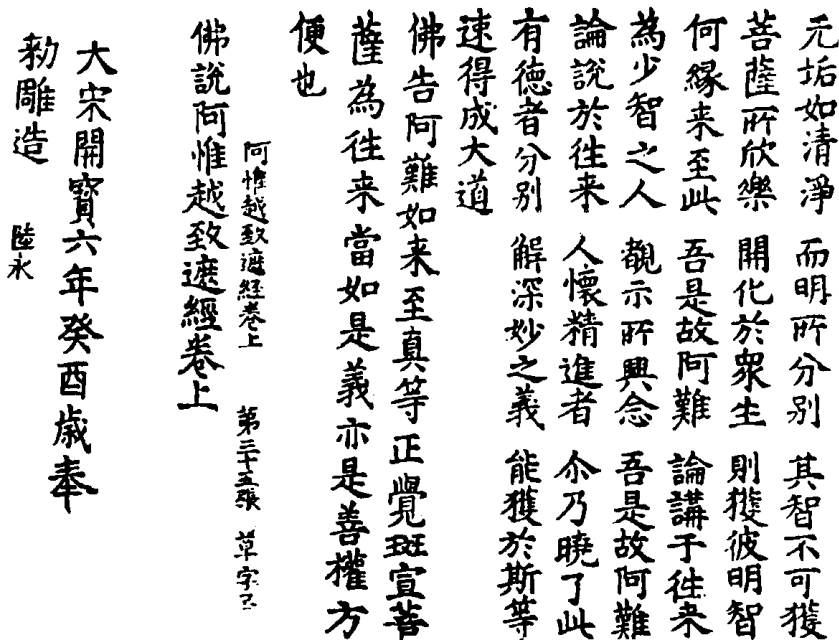 无垢如清淨 而明所分别 其智不可獲
菩薩所欣樂 開化於衆生 則獲彼明智
何緣来至此 吾是故阿難 論講于往来
為少智之人 覩示所興念 吾是故阿難
論說於往来 人懷精進者 尒乃曉了此
有德者分别 解深妙之義 能獲於斯等
速得成大道
佛告阿難如来至真等正覺班宣菩
薩為往来當如是義亦是善權方
便也
阿惟越致遮經卷上 第三十五張 草字号
佛說阿惟越致遮經卷上
大宋開寶六年癸酉歲奉
勑雕造 陸永